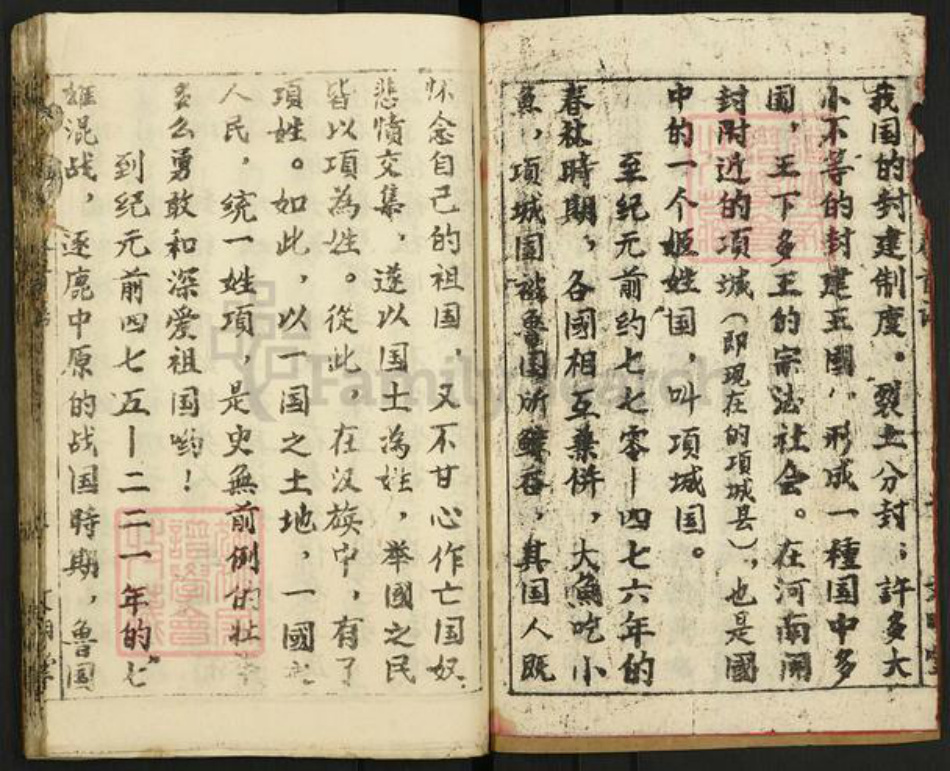 我国的封建制度。裂土分封；許多大
小不等的封建王國，形成一種国中多
国，王下多王的宗法社会。在河南開
封附近的項城（即現在的項城县），也是國
中的一个姬姓国，叫項城国。
至纪元前约七七零－四七六年的
春秋時期，各國相互兼併，大魚吃小
魚，項城国被魯国所鲸吞，其国人既
怀念自己的祖国，又不甘心作亡国奴，
悲憤交集，遂以国土為姓，举國之民
皆以項為姓。從此，在汉族中，有了
項姓。如此，以一国之土地，一國之
人民，统一姓項，是史無前例的壮
多么勇敢和深爱祖国哟！
到纪元前四七五－二二一年的七
雄混战，逐鹿中原的战国時期，魯国
FamilySearch